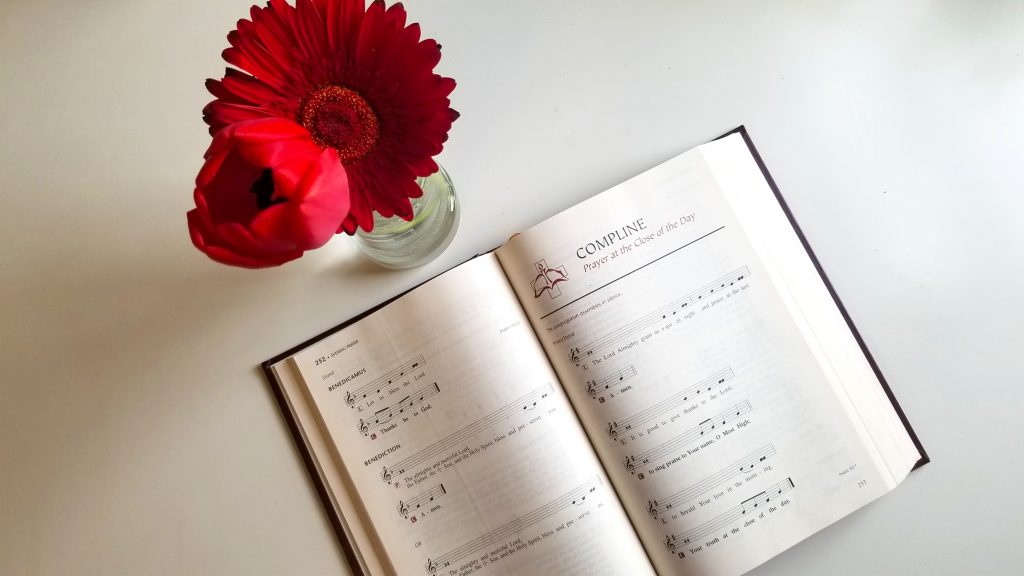 252 • EVENING PRAYER
Stand
BENEDICAMUS
L Let us bless the Lord.
C Thanks be to God.
BENEDICTION
P The almighty and merciful Lord,
the Father, the ✠ Son, and the Holy Spirit, bless and pre - serve you.
C A - men.
OR
The almighty and merciful Lord,
the Father, the ✠ Son, and the Holy Spirit, bless and pre - serve us.
COMPLINE
Prayer at the Close of the Day
The congregation assembles in silence.
L The Lord Almighty grant us a qui - et night and peace at the last.
C A - men.
L It is good to give thanks to the Lord,
C to sing praise to Your name, O Most High;
L to herald Your love in the morn - ing,
C Your truth at the close of the day.
Psalm 92:1
253